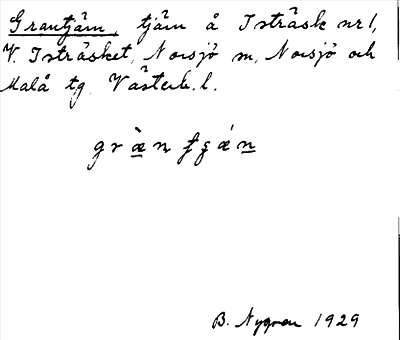 Grantjärn, tjärn å Isträsk nr 1,
V. Isträsket, Norsjö sn, Norsjö och
Malå tg Västerb. l.
B. Nygren 1929